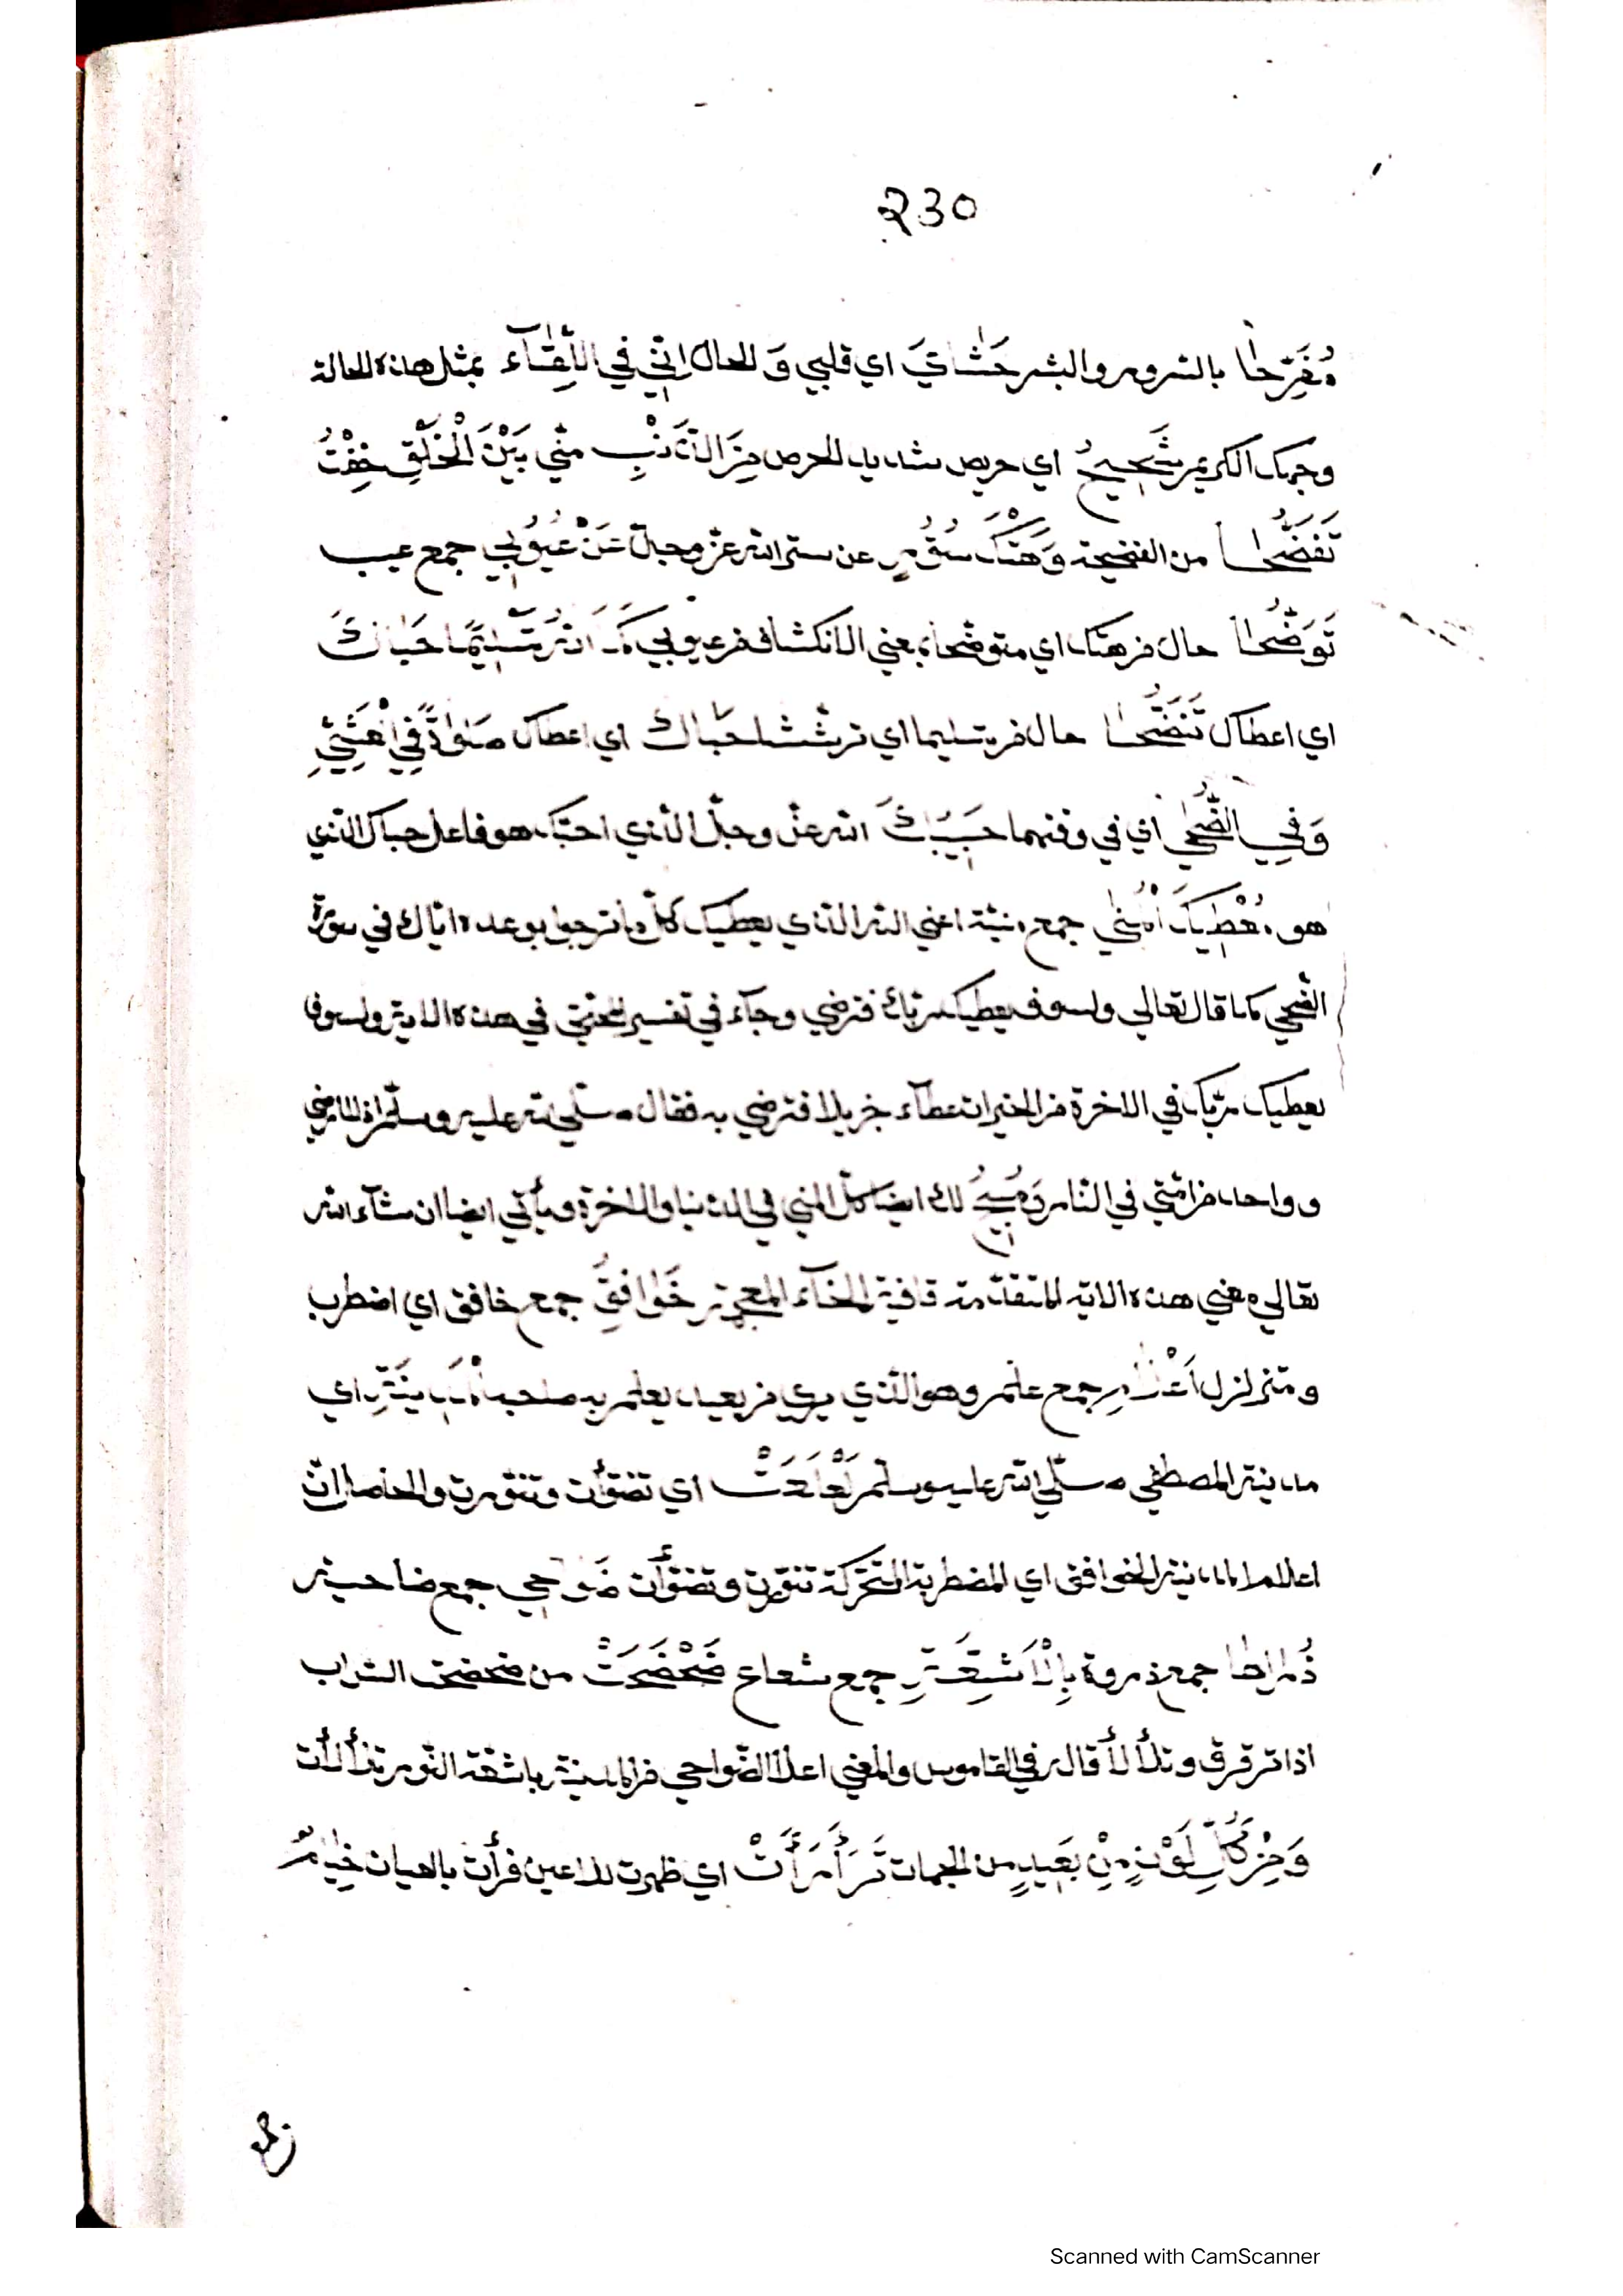 230
مُفَرِّحًا بالسرور والبشر حَشَايَ اي قلبي وَ الحال اِنِّي في اللِّقَاء بمثل هذه الحالة
وجهك الكريم شَحِيحٌ اي حريص شديد الحرص مِنَ الذَّنْبِ منّي بَيْنَ الْخَلْقِ خِفْتُ
تَفَضُّحًا من الفضيحة وَهَتْكَ سُتُورٍ عن ستر الله عز وجل عَنْ عُيُوبِي جمع عيب
تَوَضُّحًا حال من هتك اي متوضحا يعني الانكشاف من عيوبي
اي اعطاك تَنَضُّحًا حال من تسليما اي ترششا حَبَاك اي اعطاك صَلٰوةً فِي الْعَشِيِّ
وَفِي الضُّحٰى اي في وقتهما حَبِيبُكَ الله عز وجل الذي احبك هو فاعل حباك الذي
هو مُعْطِيكَ الْمُنٰى جمع منية اعني الله الذي يعطيك كل ما ترجوا بوعده اياك في سورة
الضحي كما قال تعالي ولسوف يعطيك ربك فترضي وجآء في تفسير في هذه الاية ولسوف
يعطيك ربّك في الاخرة من الخيرات عطآء جزيلا فترضي به فقال صلّي الله عليه وسلّم اذا لا ارضي
وواحد من امّتي في النار وَمُبِيحٌ لك ايضا كلّ المني في الدنيا والاخرة ويأتي ايضا ان شآء الله
تعالي معني هذه الاية المتقدّمة قافية الخآء المعجمة خَوَافِقُ جمع خافق اي اضطرب
وتزلزل اَعْلَامِ جمع علم وهو الذي يري من بعيد يعلم به صاحبه الْمَدِينَةِ اي
مدينة المصطفي صلّي الله عليه وسلم اي تضوّأت وتنوّرت والحاصل انّ
اعلام المدينة الخوافق اي المضطربة المتحرّكة تنوّرت وتضوّأت ضَوَاحِي جمع ضاحية
ذُرَاهَا جمع ذروة بِالْاَشِعَّةِ جمع شعاع ضَحْضَحَتْ من ضحضح السراب
اذا ترقرق وتلألأ قاله في القاموس والمعني اعلا الضواحي من المدينة باشعّة النور تلألأت
وَمِنْ كُلِّ لَوْنٍ مِنْ بَعِيدٍ من الجهات تَرَأْرَأَتْ اي ظهرت للاعين فرأت بالعيان خِيَامٌ